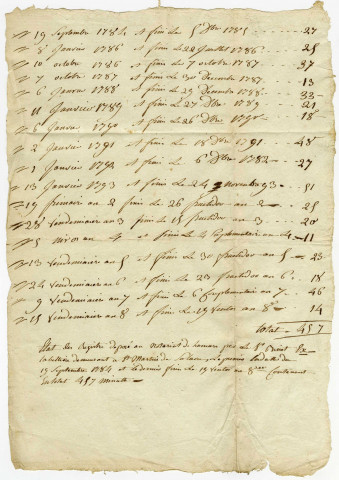 19 septembre 1784 et fini le 5 xbre 1785 27
8 janvier 1786 et fini le 22 juillet 1786 25
10 octobre 1786 et fini le 7 octobre 1787 37
7 octobre 1787 et fini le 30 decembre 1787 13
6 janvier 1788 et fini le 29 decembre 1788 33
11 janvier 1789 et fini le 27 xbre 1789 21
6 janvier 1790 et fini le 26 xbre 1790 18
2 janvier 1791 et fini le 18 xbre 1791 48
1 janvier 1792 et fini le 6 xbre 1782 27
13 janvier 1793 et fini le 24 novembre 93 51
19 frimaire an 2 fini le 26 fructidor an 2 25
28 vendemiaire an 3 fini le 15 fructidor an 3 20
5 nivos an 4 et fini le 4 an 4 11
13 vendemiaire an 5 et fini le 30 fructidor an 5 23
24 vendemiaire an 6 et fini le 23 fructidor an 6 18
9 vendemiaire an 7 et fini le 6 an 7 46
15 vendemiaire an 8 et fini le 19 ventos an 8e 14
total 457
Etat des registre deposé au notariat de par le
demeurant a St Martin de le premier en datte du
19 septembre 1784 et le dernier fini le 19 ventos an 8
en total 457 minutte